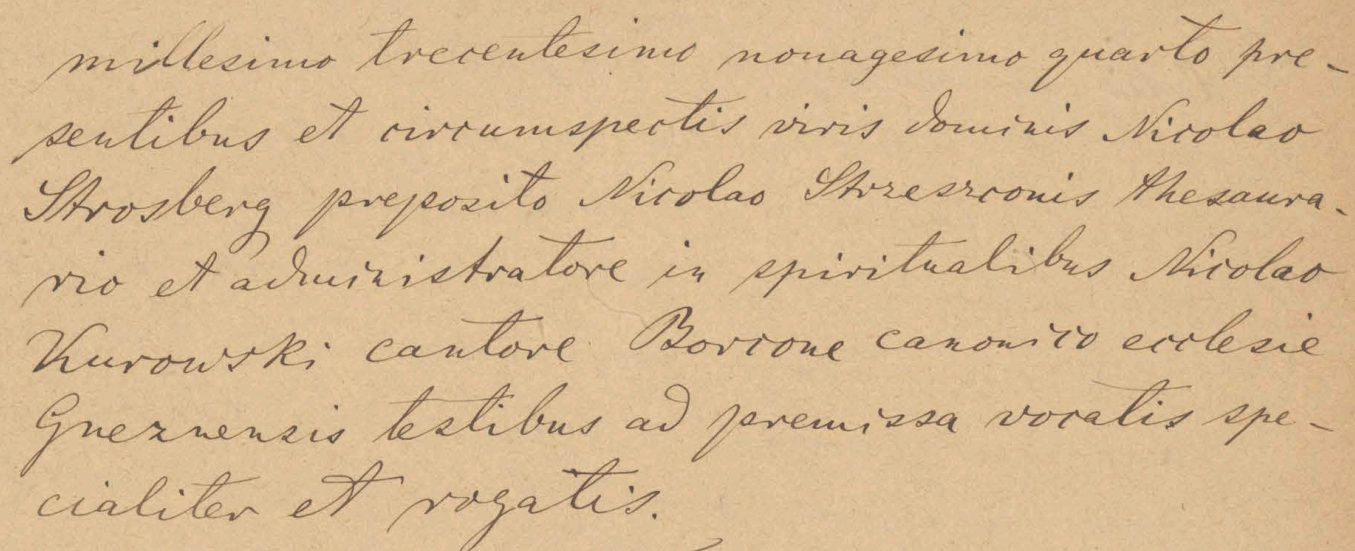 millesimo trecentesimo nonagesimo quarto pre-
sentibus et circumspectis viris dominis Nicolao
Strosberg preposito Nicolao Strzeszconis thesaura-
rio et administratore in spiritualibus Nicolao
Kurowski cantore Borcone canonico ecclesie
Gneznensis testibus ad premissa vocatis spe-
cialiter et rogatis.